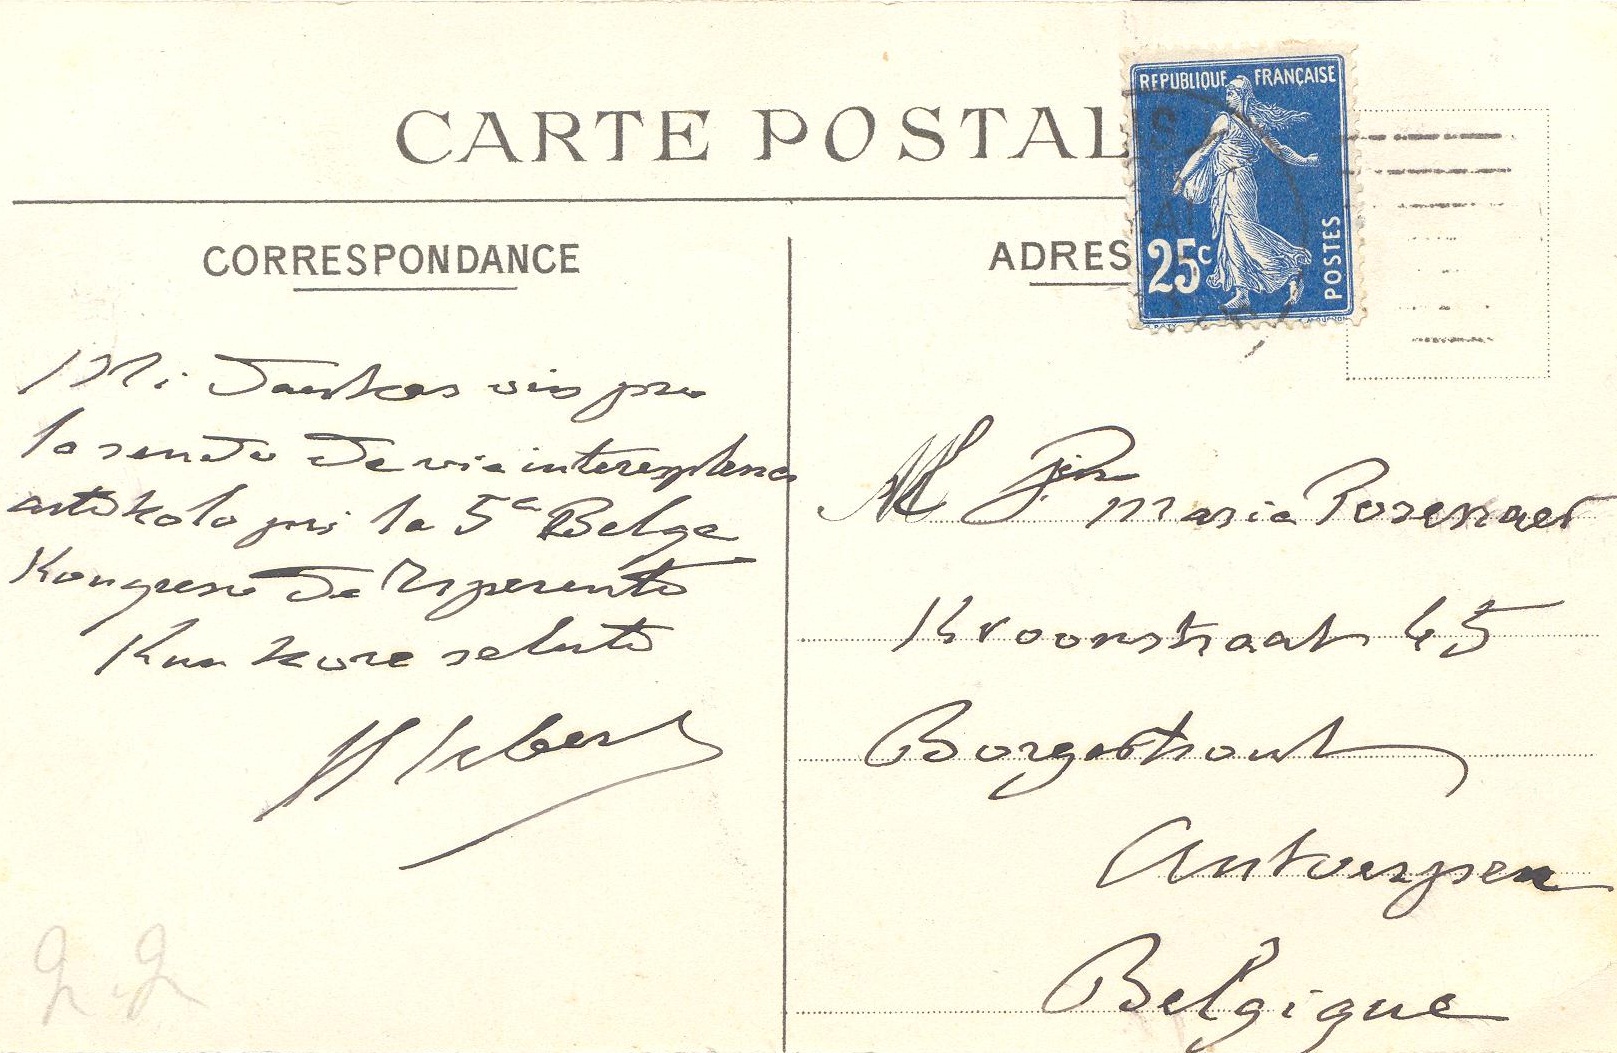 CARTE POSTAL
REPUBLIQUE FRANÇAISE
25c
POSTES
CORRESPONDANCE
ADRES
Mi dankas vin pro
la sendo de via interesplena
artikolo pri la 5a Belga
Kongreso de Esperanto
Kun kora saluto
M Maria Posenaer
Kroonstraat 45
Borgerhout
Antwerpen
Belgique